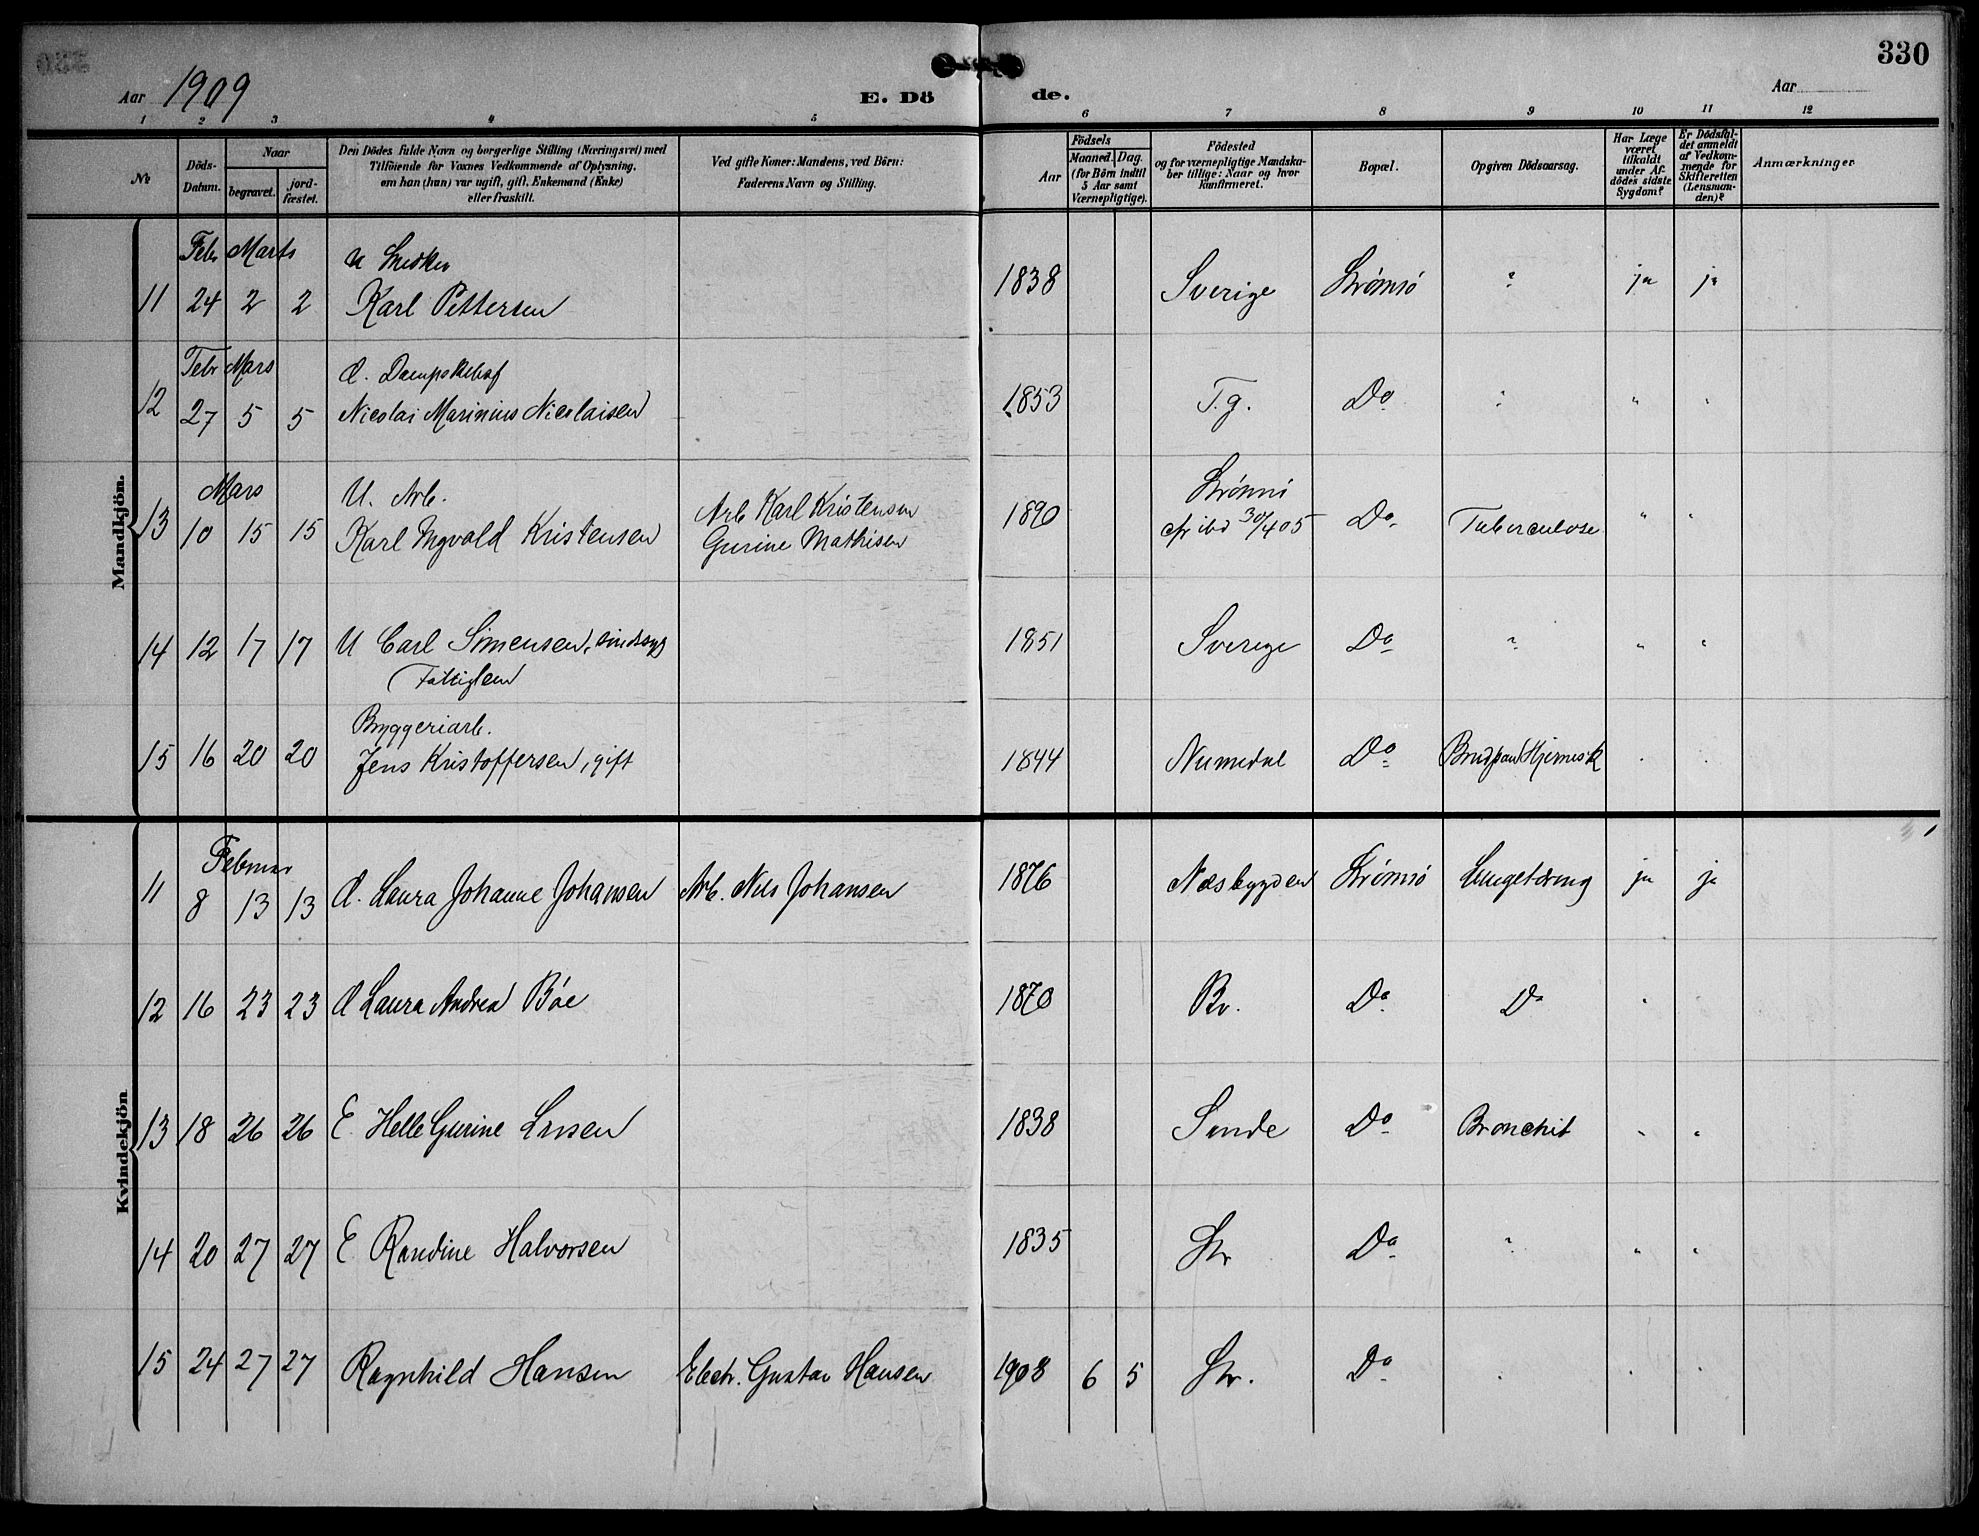 330
Aar 1909
E. Dö de.
Aar
1 2 3 4 5 6 7 8 9 10 11 12
No
Döds-Datum.
Naar
begravet.
jord-fæstet.
Den Dödes fulde Navn og borgerlige Stilling (Næringsvei) med
Tilföiende for Voxnes Vedkommende af Oplysning,
om han (hun) var ugift, gift, Enkemand (Enke)
eller fraskilt.
Ved gifte Koner: Mandens, ved Börn:
Faderens Navn og Stilling.
Aar
Födsels
Maaned. Dag.
(for Börn indtil
5 Aar samt
Værnepligtige).
Födested
og for værnepligtige Mandska-
ber tillige: Naar og hvor
konfirmeret.
Bopæl.
Opgiven Dödsaarsag.
Har Læge
været
tilkaldt
under Af-
dödes sidste
Sygdom?
Er Dödsfal-
det anmeldt
af Vedkom-
mende for
Skifteretten
(Lensman-
den)?
Anmærkninger
Mandkjön.
Febr Marts U Snedker
11 24 2 2 Karl Pettersen 1838 Sverige Strømsö " ja ja
Febr Mars d.
12 27 5 5 Nicolai Marinius Nicolaisen 1853 T.g. Do " " "
Mars U. Arb. Arb Karl Kristensen Strømsö
13 10 15 15 Karl Ingvald Kristensen Gurine Mathisen 1890 cfr ibd 30/4 05 Do Tuberculose " "
14 12 17 17 U Carl Simensen, sindssyg 1851 Sverige Do " " "
Fattiglem
Byggeriarb.
15 16 20 20 Jens Kristoffersen, gift 1844 Numedal Do
Kvindekjön
Februar
11 8 13 13 d. Laura Johanne Johansen Arb. Nils Johansen 1876 Næsbygden Strømsö Lungetæring ja ja
12 16 23 23 d Laura Andrea Bóe 1870 Br. Do Do " "
13 18 26 26 E. Helle Gurine Larsen 1838 Sande Do Bronchit " "
14 20 27 27 E Randine Halvorsen 1835 Str Do " " "
15 24 27 27 Ragnhild Hansen Electr. Gustav Hansen 1908 6 5 Str. Do " " "